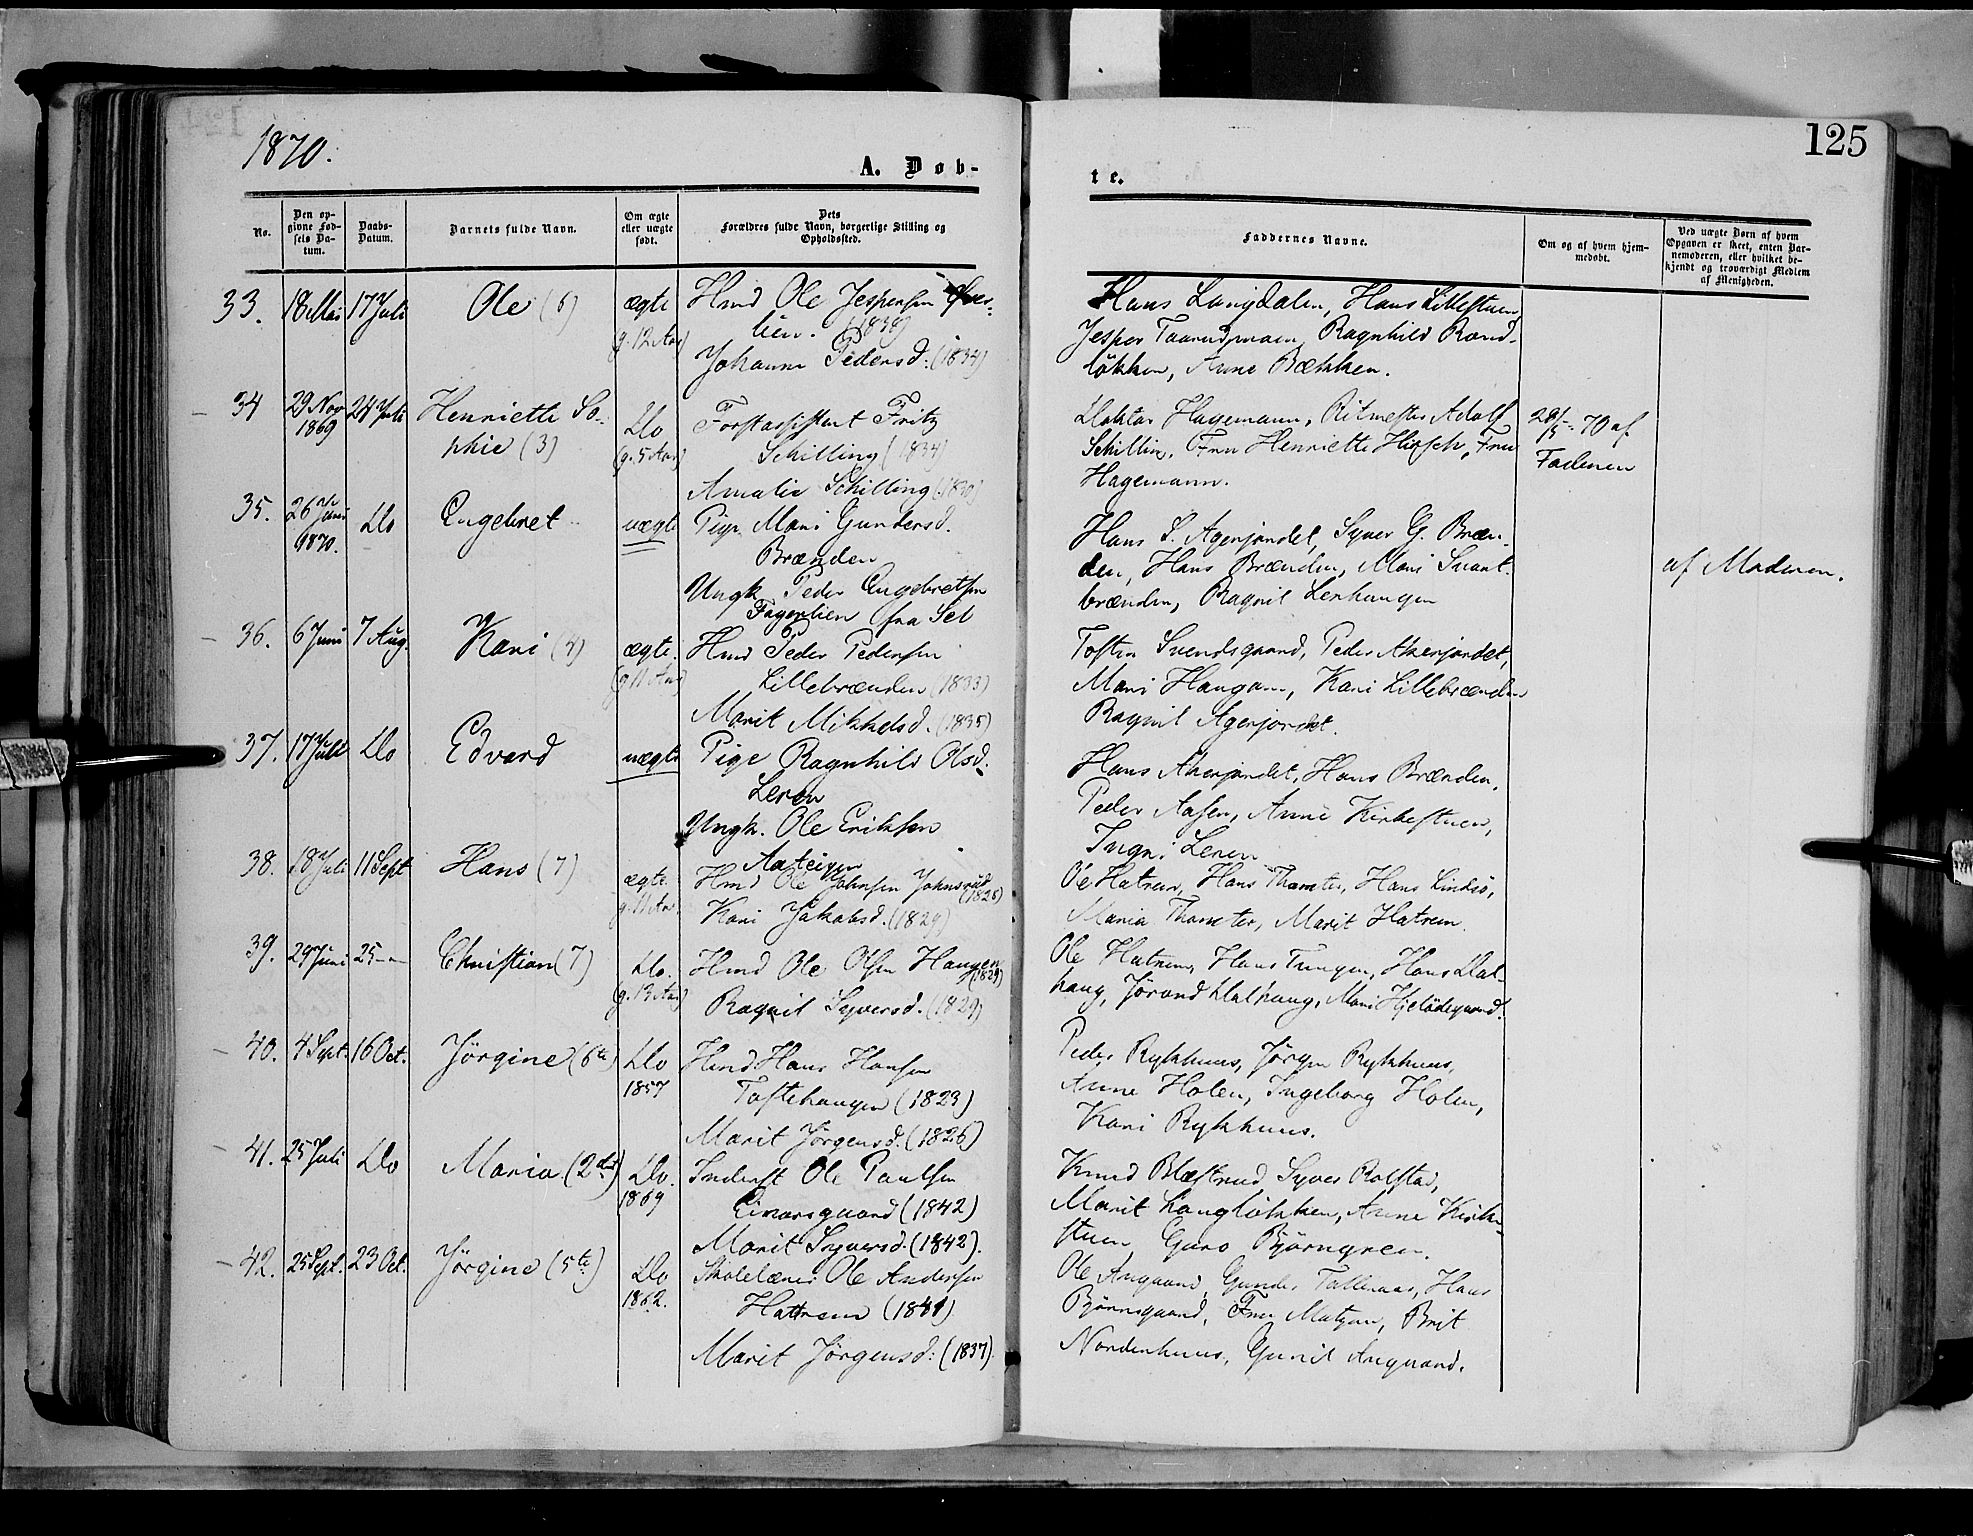 1870.
125
A. Døb-
te.
No.
Den op-
givne Fød-
sels Da-
tum.
Daabs-
Datum.
Barnets fulde Navn.
Om ægte
eller uægte
født.
Dets
Forældres fulde Navn, borgerlige Stilling og
Opholdssted.
Faddernes Navne.
Om og af hvem hjem-
medøbt.
Ved uægte Børn af hvem
Opgaven er skeet, enten Bar-
nemoderen, eller hvilket be-
kjendt og troværdigt Medlem
af Menigheden.
33. 18 Mai 17 Juli Ole (6) ægte Hmd Ole Jespersen
(g. 12 Aar) lien. (1838)
Johanne Pedersd. (1834)
Hans Langdalen, Hans Lillestuen
Jesper Ragnhild Rand-
løkken, Anne Bækken.
34 29 Nov 24 Juli Henriette So- Do Forstassistent Fritz
1869 phie (3) (g. 5 Aar) Schilling (1834)
Amalie Schilling
Doktor Hagemann, Ritmester Adolf
Schilling, Fru Henriette Hirsch, Fru
Hagemann.
70 af
Faderen
35. 26 Juni Do Engebret uægte Pige Mari Gundersd.
1870. Brænden
Ungk. Peder Engebretsen
Fagerlien fra Sel
Hans S. Agerjordet, Syver G. Bræn-
den, Hans Brænden, Mari Svart-
brænden, Ragnil Lenhaugen
af Moderen.
36. 6 Juni 7 Aug. Kari (4) ægte. Hmd Peder Pedersen
(g. 11 Aar) Lillebrænden (1833)
Marit Mikkelsd. (1835)
Tosten Svendsgaard, Peder Akerjordet,
Mari Haugan, Kari Lillebrænden
Ragnil Agerjordet.
37. 17 Juli Do Edvard uægte Pige Ragnhild Olsd.
Leren
Ungk. Ole Eriksen
Aateigen
Hans Akerjordet, Hans Brænden,
Peder Aasen, Anne Kirkestuen,
Ingri Leren
38. 18 Juli 11 Sept Hans (7) ægte. Hmd Ole Johnsen Johnsrud
(1826)
g. 11 Aar. Kari Jakobsd. (1829)
Ole Hatrem, Hans Thamster, Hans Lindsø,
Maria Thamster, Marit Hatrem.
39. 29 Juni 25 — Christian (7) Do. Hmd Ole Olsen Haugen
(1829)
(g. 13 Aar) Ragnil Syversd. (1829)
Ole Hatrem, Hans Tungen, Hans Dal-
haug, Jørand Dalhaug, Mari
40. 4 Sept. 16 Oct. Jørgine (6te) Do Hmd Hans Hansen
1857 Toftehaugen (1823)
Marit Jørgensd. (1826)
Peder Rykhuus, Jørgen Rykhuus,
Anne Holen, Ingeborg Holen,
Kari Rykhuus.
41. 25 Juli Do Maria (2det) Do. Inderst Ole Paulsen
1869 Einarsgaard (1842)
Marit Syversd. (1842).
Knud Blæstrud Syver Rolstad,
Marit Langløkken, Anne Kirke-
stuen Guro Bjørngren.
42. 25 Sept. 23 Oct. Jørgine (5te) Do Skolelærer Ole Andersen
1862. Hattrem
Marit Jørgensd: (1837)
Ole Angaard, Gunder Talleraas, Hans
Bjørnsgaard, Fru Matzon, Brit
Nordenhuus, Gunil Angaard.